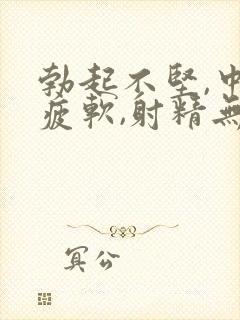 勃起不堅,中
疲軟,射精無
冥公